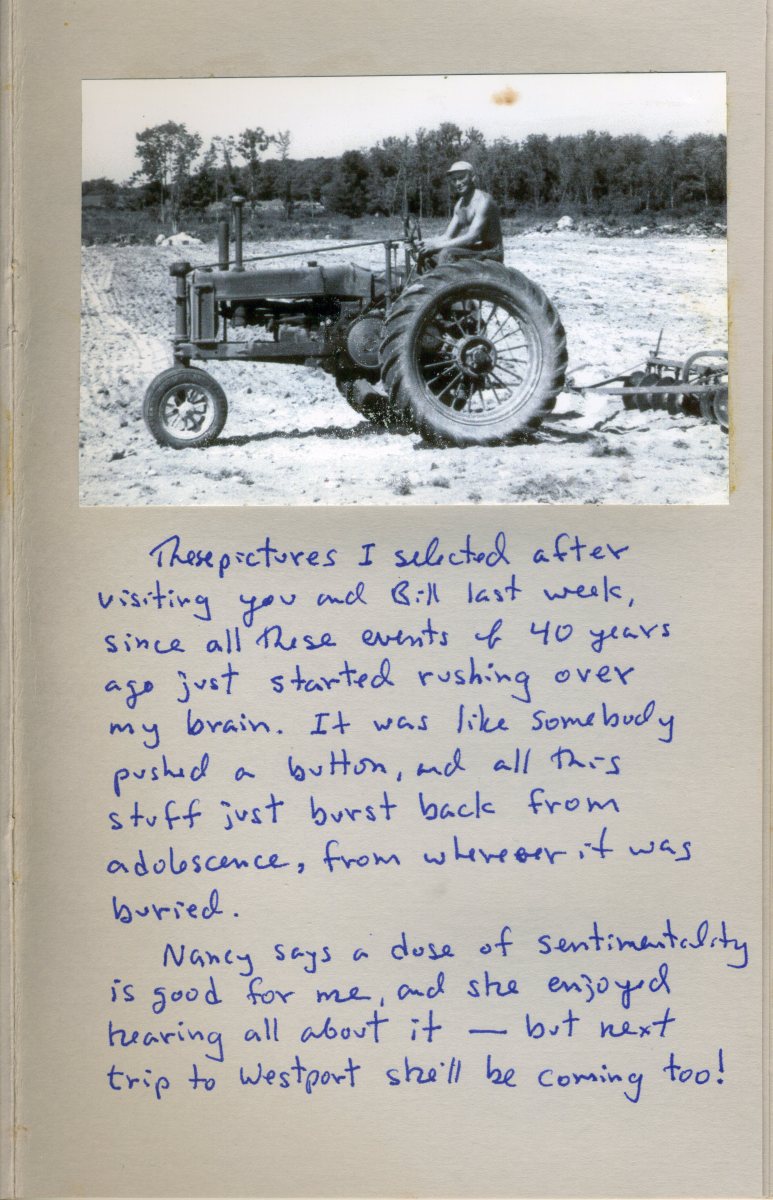 These pictures I selected after
visiting you and Bill last week,
since all these events of 40 years
ago just started rushing over
my brain. It was like somebody
pushed a button, and all this
stuff just burst back from
adolescence, from wherever it was
buried.
Nancy says a dose of sentimentality
is good for me, and she enjoyed
hearing all about it — but next
trip to Westport she'll be coming too!